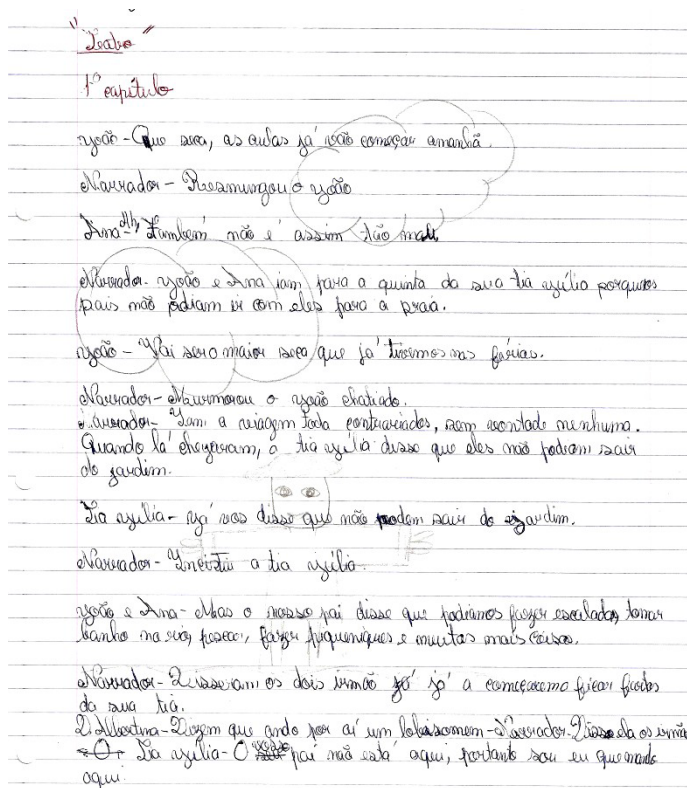 "Teatro"
1º capítulo
João - Que seca, as aulas já vão começar amanhã.
Narrador - Resmungou o João
Ana - Ah, também não é assim tão mau
Narrador - João e Ana iam para a quinta da sua tia Júlia porque os
pais não podiam ir com eles para a praia.
João - Vai ser o maior seca que já tivemos nas férias.
Narrador - Murmurou o João chatiado.
Narrador - Iam a viagem toda contrariados, sem vontade nenhuma.
Quando lá chegaram, a tia Júlia disse que eles não podiam sair
do jardim.
Tia Júlia - Já vos disse que não podem sair do jardim.
Narrador - a tia Júlia.
João e Ana - Mas o nosso pai disse que podíamos fazer escaladas, tomar
banho no rio, pescar, fazer piqueniques e muitas mais coisas.
Narrador - Disseram os dois irmão já a ficar fartos
da sua tia.
D. Albertina - Dizem que anda por aí um lobisomem - Narrador - Disse ela os irmã
Tia Júlia - O vosso pai não está aqui, portanto sou eu que mando
aqui.